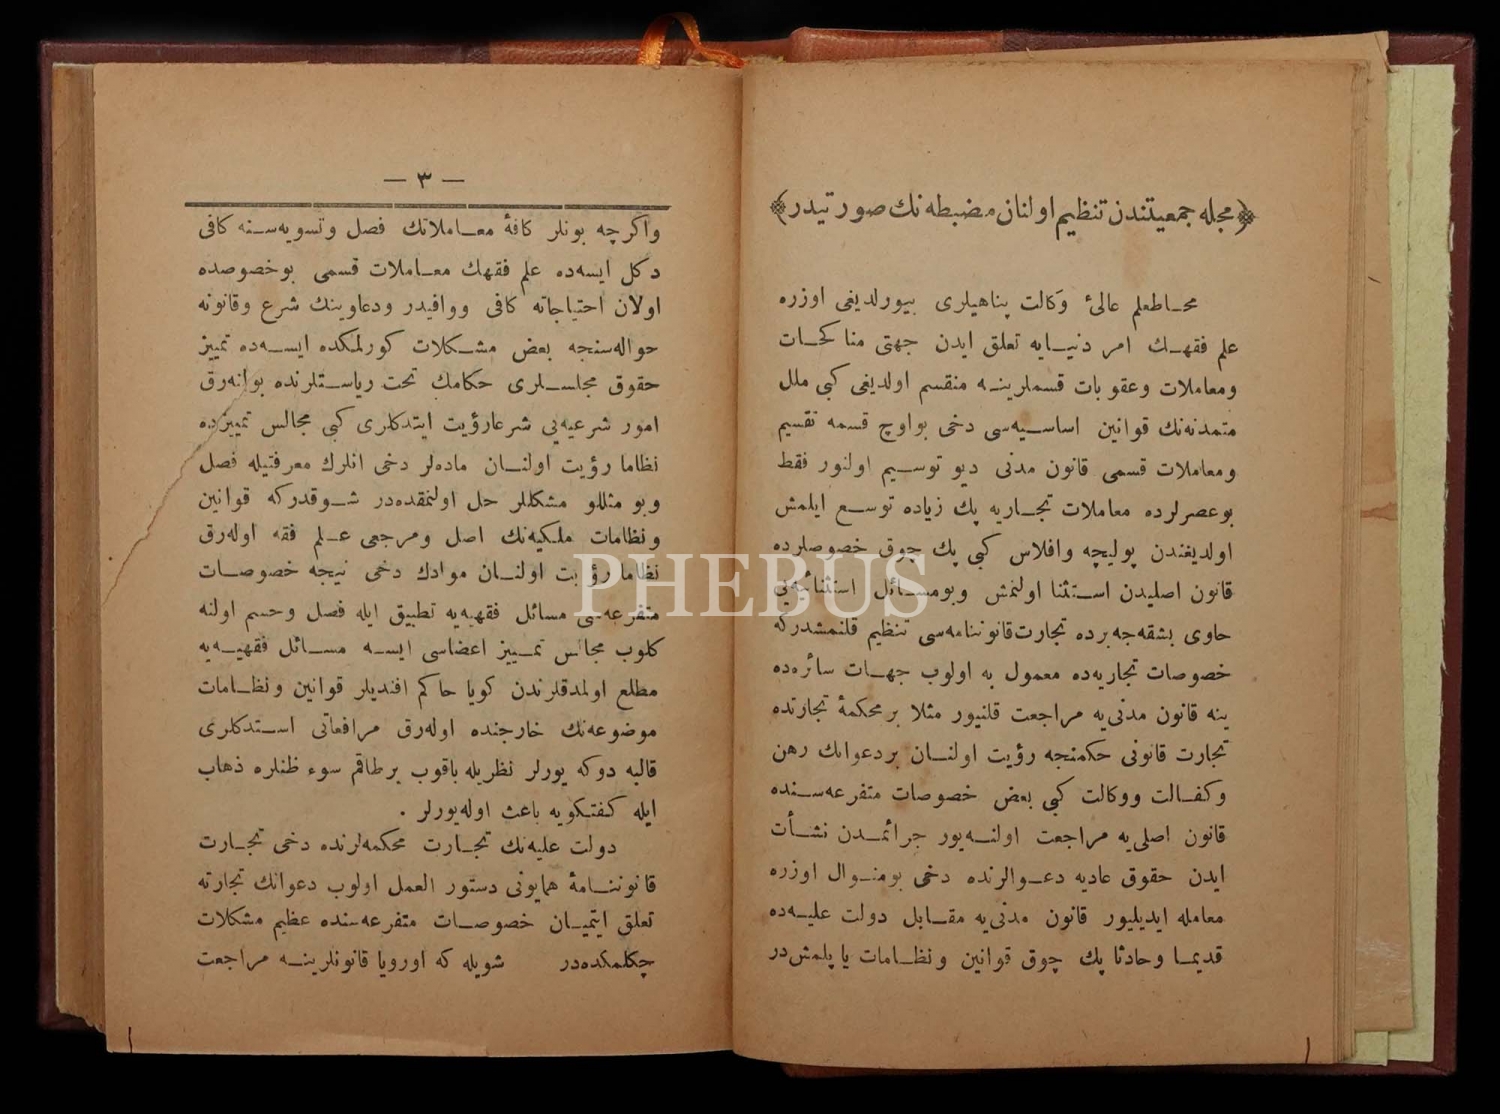 ﴿مجله جمعيتندن تنظيم اولنان مضبطه نك صورتيدر﴾
محاط علم عالئ وكالت پناهيلرى بيورلديغى اوزره
علم فقهك امر دنيايه تعلق ايدن جهتى مناكحات
ومعاملات وعقوبات قسملرينه منقسم اولديغى كبى ملل
متمدنه‌نك قوانين اساسيه‌سى دخى بو اوچ قسمه تقسيم
ومعاملات قسمى قانون مدنى ديو توسيم اولنور فقط
بو عصرلرده معاملات تجاريه پك زياده توسع ايلمش
اولديغندن پوليچه وافلاس كبى پك چوق خصوصلرده
قانون اصليدن استثنا اولنمش وبو مسائل استثنائيه‌يى
حاوى بشقه‌جه برده تجارت قانوننامه‌سى تنظيم قلنمشدركه
خصوصات تجاريه‌ده معمول به اولوب جهات سائره‌ده
ينه قانون مدنى‌يه مراجعت قلنيور مثلا بر محكمۀ تجارتده
تجارت قانونى حكمنجه رؤيت اولنان بر دعوانك رهن
وكفالت ووكالت كبى بعض خصوصات متفرعه‌سنده
قانون اصلى‌يه مراجعت اولنه‌يور جرائمدن نشأت
ايدن حقوق عاديه دعوالرنده دخى بو منوال اوزره
معامله ايديليور قانون مدنى‌يه مقابل دولت عليه‌ده
قديما وحادثا پك چوق قوانين ونظامات ياپلمش‌در
— ٣ —
واكرچه بونلر كافۀ معاملاتك فصل وتسويه‌سنه كافى
دكل ايسه‌ده علم فقهك معاملات قسمى بو خصوصده
اولان احتياجاته كافى ووافيدر ودعاوينك شرع وقانونه
حواله‌سنجه بعض مشكلات كورلمكده ايسه‌ده تمييز
حقوق مجلسلرى حكامك تحت رياستلرنده بوانه‌رق
امور شرعيه‌يى شرعا رؤيت ايتدكلرى كبى مجالس تمييزده
نظاما رؤيت اولنان ماده‌لر دخى انلرك معرفتيله فصل
وبو مثللو مشكللر حل اولنمقده‌در شوقدركه قوانين
ونظامات ملكيه‌نك اصل ومرجعى علم فقه اوله‌رق
نظاما رؤيت اولنان موادك دخى نيجه خصوصات
متفرعه‌سى مسائل فقهيه‌يه تطبيق ايله فصل وحسم اولنه
كلوب مجالس تمييز اعضاسى ايسه مسائل فقهيه‌يه
مطلع اولمدقلرندن كويا حاكم افنديلر قوانين ونظامات
موضوعه‌نك خارجنده اوله‌رق مرافعاتى استدكلرى
قالبه دوكه يورلر نظريله باقوب بر طاقم سوء ظنلره ذهاب
ايله كفتكويه باعث اوله‌يورلر .
دولت عليه‌نك تجارت محكمه‌لرنده دخى تجارت
قانوننامۀ همايونى دستور العمل اولوب دعوانك تجارته
تعلق ايتميان خصوصات متفرعه‌سنده عظيم مشكلات
چكلمكده‌در شويله كه اوروپا قانونلرينه مراجعت
PHEBUS